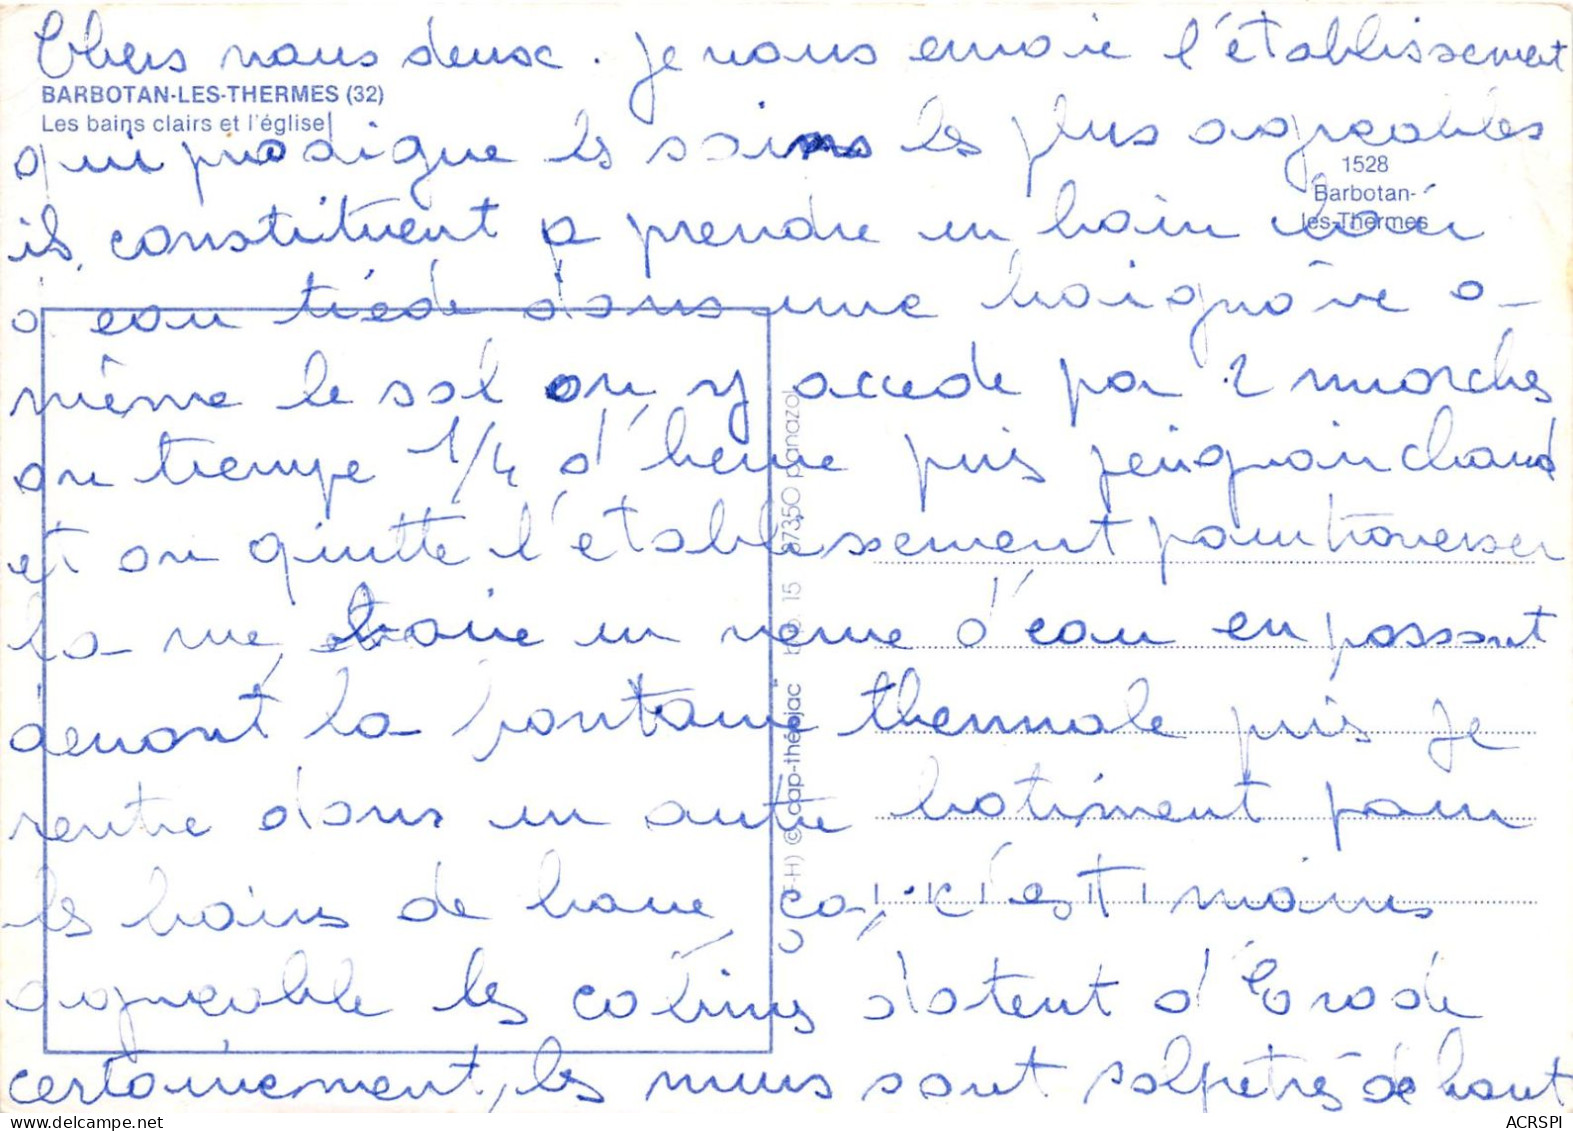 Chers vous deux. Je vous envoie l'établissement
BARBOTAN-LES-THERMES (32)
Les bains clairs et l'église
qui prodigue les soins les plus agréables
1528
Barbotan-
les-Thermes
ils constituent a prendre un bain clair
a eau tiède dans une baignoire a
même le sol on y accede par 2 marches
on trempe 1/4 d'heure puis peignoir chaud
et on quitte l'établissement pour traverser
la rue, boire un verre d'eau en passant
devant la fontaine thermale puis je
rentre dans un autre batiment pour
les bains de boue, ça, c'est moins
agréable les cabines datent d'Erode
certainement, les murs sont salpetrés de haut
(F-H) © cap-théojac" 15 87350 panazol
ACRSPI